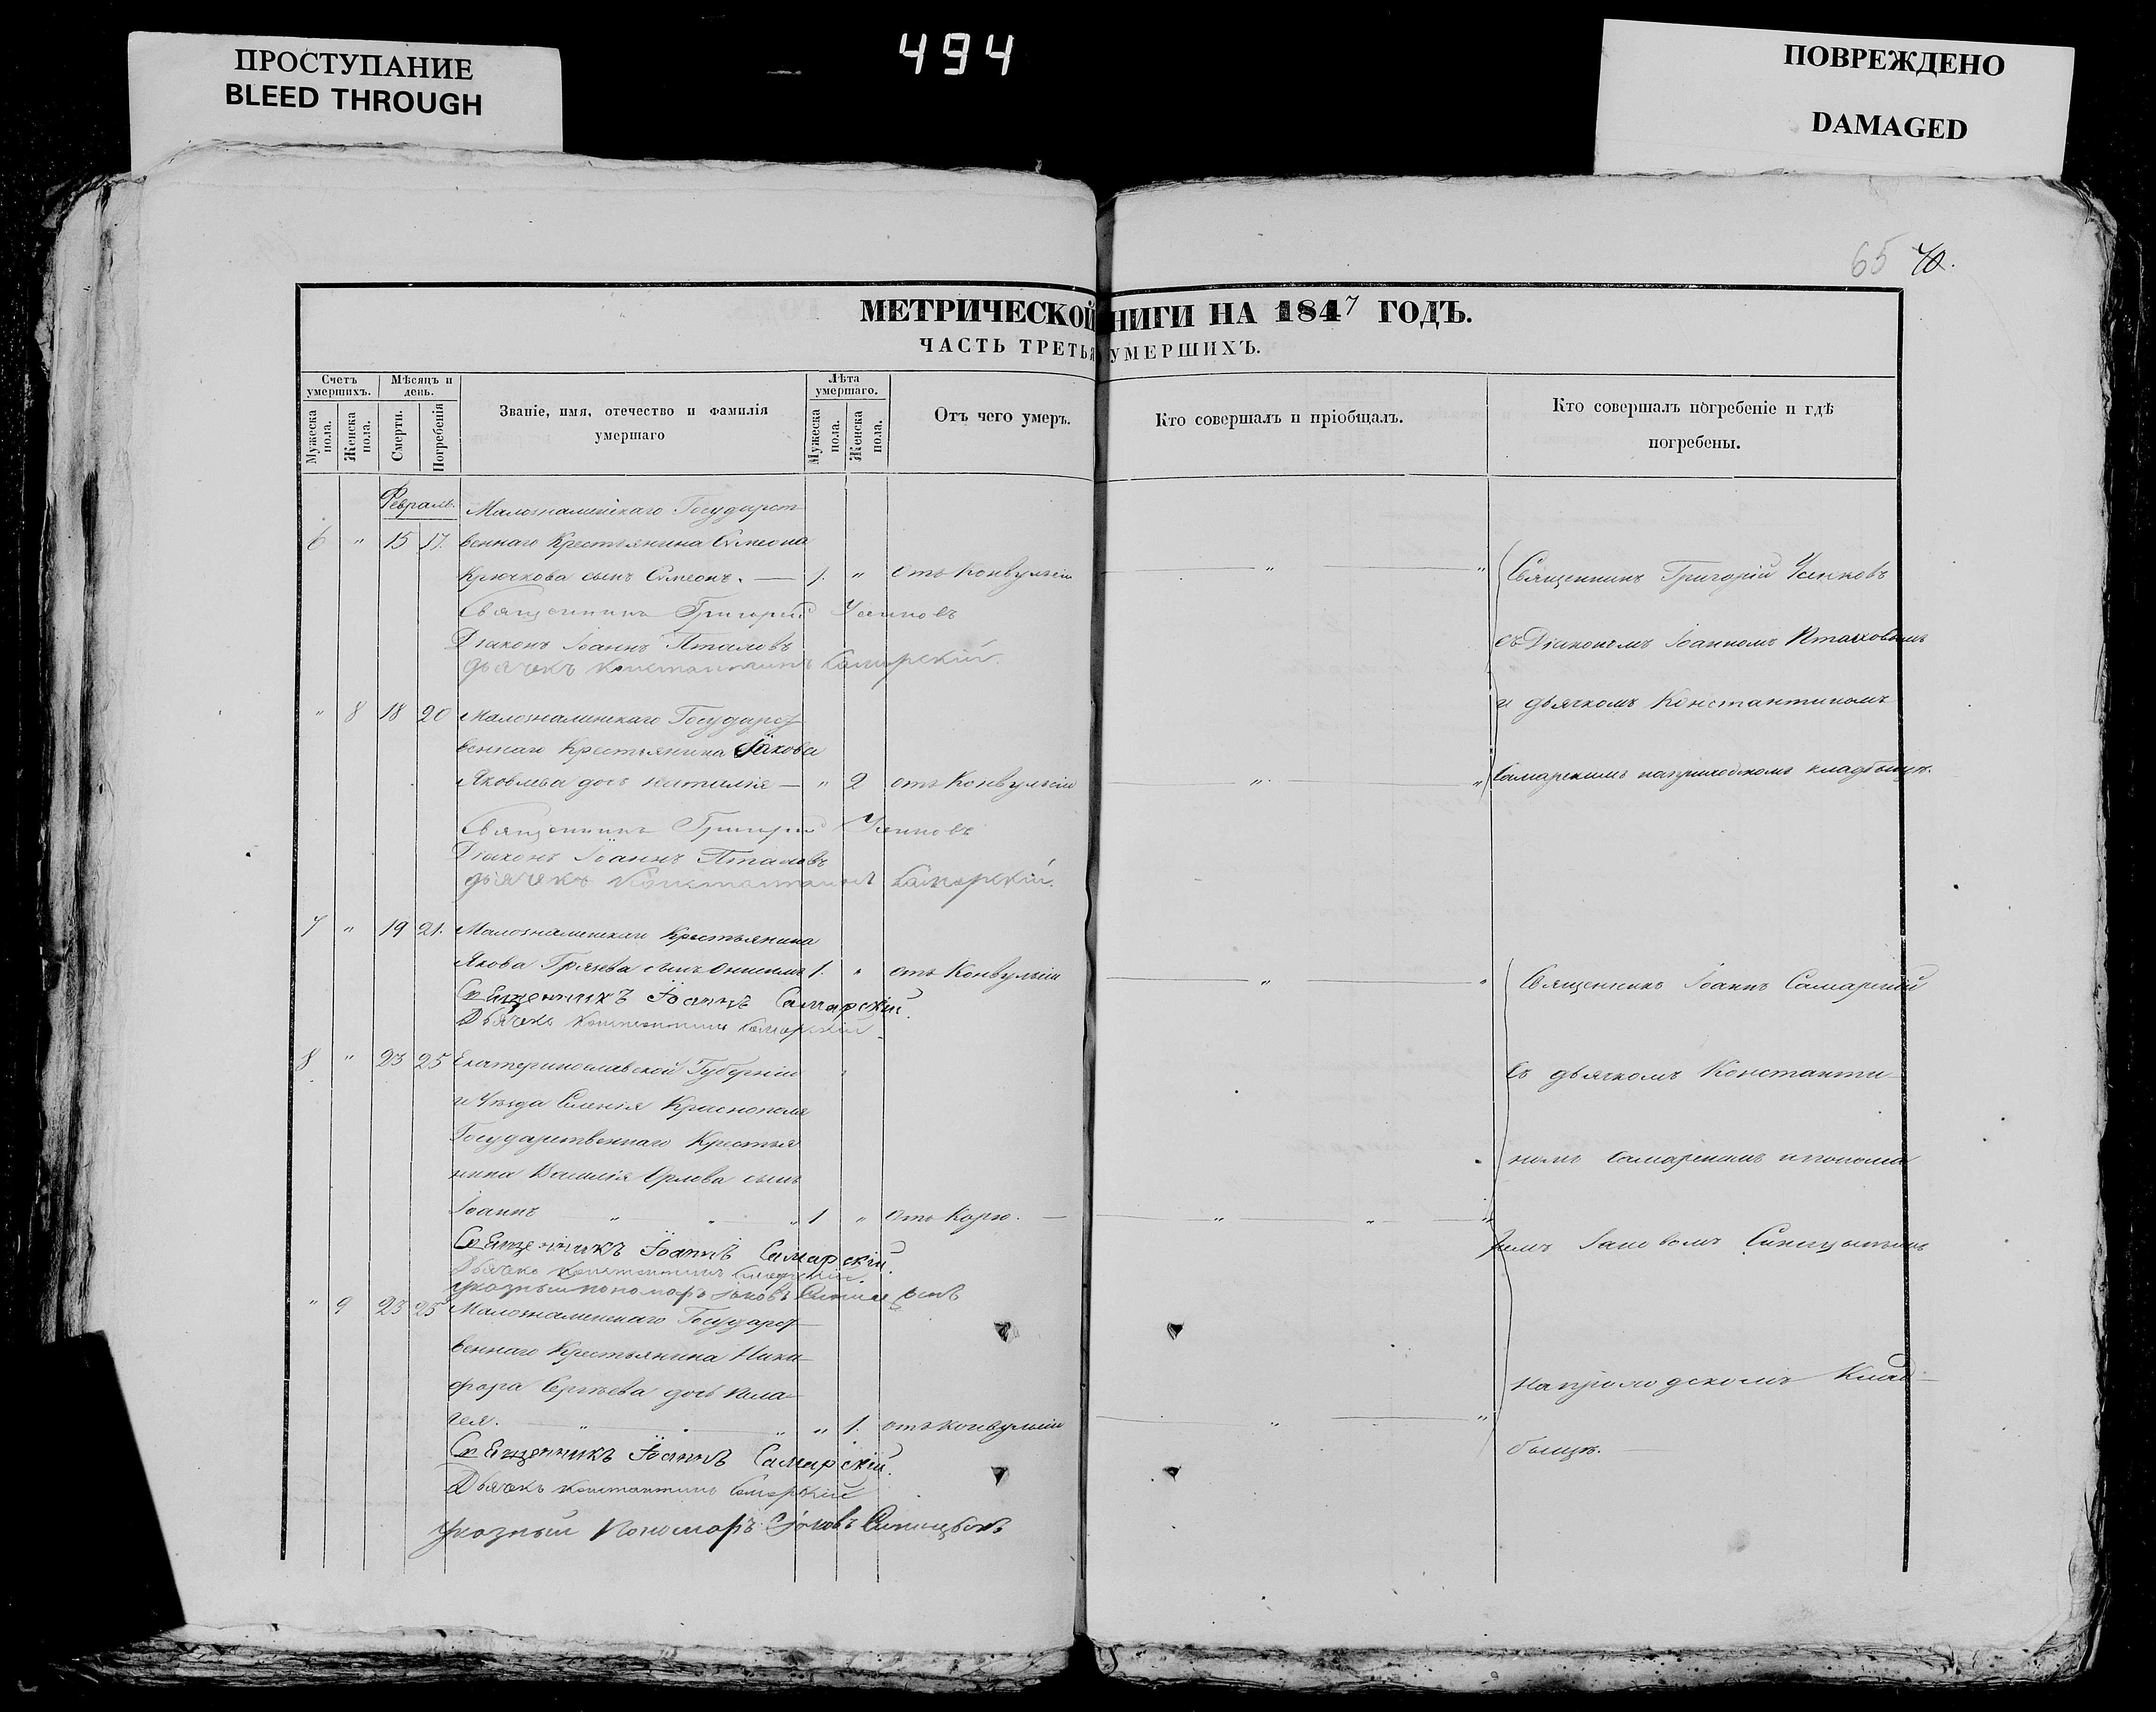 ПРОСТУПАНИЕ
BLEED THROUGH
494
ПОВРЕЖДЕНО
DAMAGED
65 70.
МЕТРИЧЕСКОЙ НИГИ НА 1847 ГОДЪ.
ЧАСТЬ ТРЕТЬЯ УМЕРШИХЪ.
Счетъ умершихъ.
Мѣсяцъ и день.
Званіе, имя, отечество и фамилія умершаго
Лѣта умершаго.
Отъ чего умеръ.
Кто совершалъ и пріобщалъ.
Кто совершалъ погребеніе и гдѣ погребены.
Мужеска пола.
Женска пола.
Смерти.
Погребенія
Мужеска пола.
Женска пола.
Февраль.
Малознаменскаго Государст
6 " 15 17. веннаго Крестьянина Симеона
Крючкова сынъ Симеонъ. — 1. " отъ Конвульсіи — " — "
Священникъ Григорій
Діаконъ Іоаннъ
дьячекъ Константинъ Самарскій.
Священникъ Григорій
съ Діакономъ Іоанномъ
и дьячкомъ Константиномъ
Самарскимъ на приходскомъ кладбищѣ.
" 8 18 20 Малознаменскаго Государст
веннаго Крестьянина Іакова
Яковлева дочь Наталія — " 2 отъ Конвульсіи — " — "
Священникъ Григорій
Діаконъ Іоаннъ
дьячекъ Константинъ Самарскій.
7 " 19 21. Малознаменскаго Крестьянина
Якова сынъ 1. " отъ Конвульсіи — " — "
Священникъ Іоаннъ Самарскій.
Дьячекъ Константинъ Самарскій
Священникъ Іоаннъ Самарскій
съ дьячкомъ Константи
номъ Самарскимъ и понома
ремъ Іаковомъ
на приходскомъ Клад-
бищѣ.
8 " 23 25 Екатеринославской Губерніи
и Уѣзда Селенія Краснополя
Государственнаго Крестья
нина Василія Орлова сынъ
Іоаннъ " " " 1 " отъ Корю. — " — " — "
Священникъ Іоаннъ Самарскій.
Дьячекъ Константинъ Самарскій.
указный пономарь Іаковъ
" 9 23 25 Малознаменскаго Государст
веннаго Крестьянина Ники-
фора Сергѣева дочь Пела-
гея. " " " " 1. отъ конвульсіи — " — "
Священникъ Іоаннъ Самарскій.
Дьячекъ Константинъ Самарскій
указный Пономарь Іаковъ